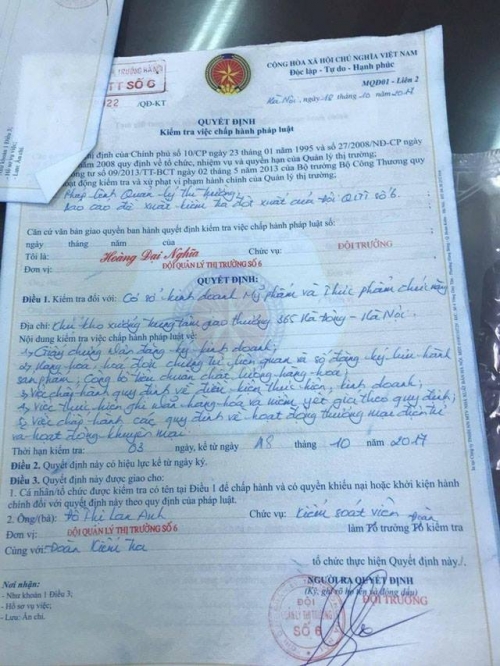 TRƯỜNG HÀ NỘI
TT SỐ 6
CỘNG HÒA XÃ HỘI CHỦ NGHĨA VIỆT NAM
Độc lập - Tự do - Hạnh phúc
MQĐ01 - Liên 2
/QĐ-KT
Hà Nội, ngày 18 tháng 10 năm 2017
QUYẾT ĐỊNH
Kiểm tra việc chấp hành pháp luật
định của Chính phủ số 10/CP ngày 23 tháng 01 năm 1995 và số 27/2008/NĐ-CP ngày
năm 2008 quy định về tổ chức, nhiệm vụ và quyền hạn của Quản lý thị trường;
tư số 09/2013/TT-BCT ngày 02 tháng 5 năm 2013 của Bộ trưởng Bộ Công Thương quy
động kiểm tra và xử phạt vi phạm hành chính của Quản lý thị trường;
Pháp lệnh Quản lý thị trường;
Báo cáo đề xuất kiểm tra đột xuất của đội QLTT số 6.
Căn cứ văn bản giao quyền ban hành quyết định kiểm tra việc chấp hành pháp luật số:
ngày tháng năm của
Tôi là: Hoàng Đại Nghĩa Chức vụ: ĐỘI TRƯỞNG
Đơn vị: ĐỘI QUẢN LÝ THỊ TRƯỜNG SỐ 6
QUYẾT ĐỊNH:
Điều 1. Kiểm tra đối với: Cơ sở kinh doanh Mỹ phẩm và Thực phẩm chức năng
Địa chỉ: Chủ kho xưởng trung tâm giao thương 365 Hà Đông - Hà Nội.
Nội dung kiểm tra việc chấp hành pháp luật về:
1) Giấy chứng nhận đăng ký kinh doanh;
2) Hàng hóa, hóa đơn chứng từ liên quan và số đăng ký lưu hành
sản phẩm; Công bố tiêu chuẩn chất lượng hàng hóa;
3) Việc chấp hành quy định về điều kiện kinh doanh;
4) Việc thực hiện ghi nhãn hàng hóa và niêm yết giá theo quy định;
5) Việc chấp hành các quy định về hoạt động thương mại điện tử
và hoạt động khuyến mại
Thời hạn kiểm tra: 03 ngày, kể từ ngày 18 tháng 10 năm 2017
Điều 2. Quyết định này có hiệu lực kể từ ngày ký.
Điều 3. Quyết định này được giao cho:
1. Cá nhân/tổ chức được kiểm tra có tên tại Điều 1 để chấp hành và có quyền khiếu nại hoặc khởi kiện hành
chính đối với quyết định này theo quy định của pháp luật.
2. Ông/(bà): Đỗ Thị Lan Anh Chức vụ: Kiểm soát viên
Đơn vị: ĐỘI QUẢN LÝ THỊ TRƯỜNG SỐ 6 làm Tổ trưởng Tổ kiểm tra
Cùng với: Đoàn kiểm tra
tổ chức thực hiện Quyết định này./.
Nơi nhận:
- Như khoản 1 Điều 3;
- Hồ sơ vụ việc;
- Lưu: Ấn chỉ.
NGƯỜI RA QUYẾT ĐỊNH
(Ký, ghi rõ họ tên và đóng dấu)
ĐỘI TRƯỞNG
ĐỘI
QUẢN LÝ THỊ TRƯỜNG
SỐ 6